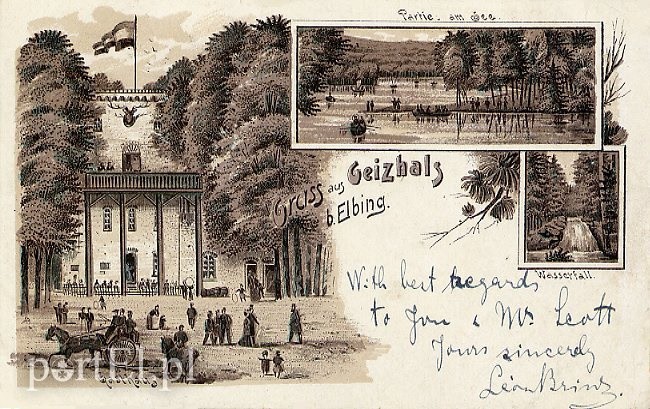 Partie am See.
Gruss aus Geizhals
b. Elbing.
Wasserfall.
With best regards
to You & Mr Scott
Yours sincerely
Léon
Gasthaus
portEl.pl